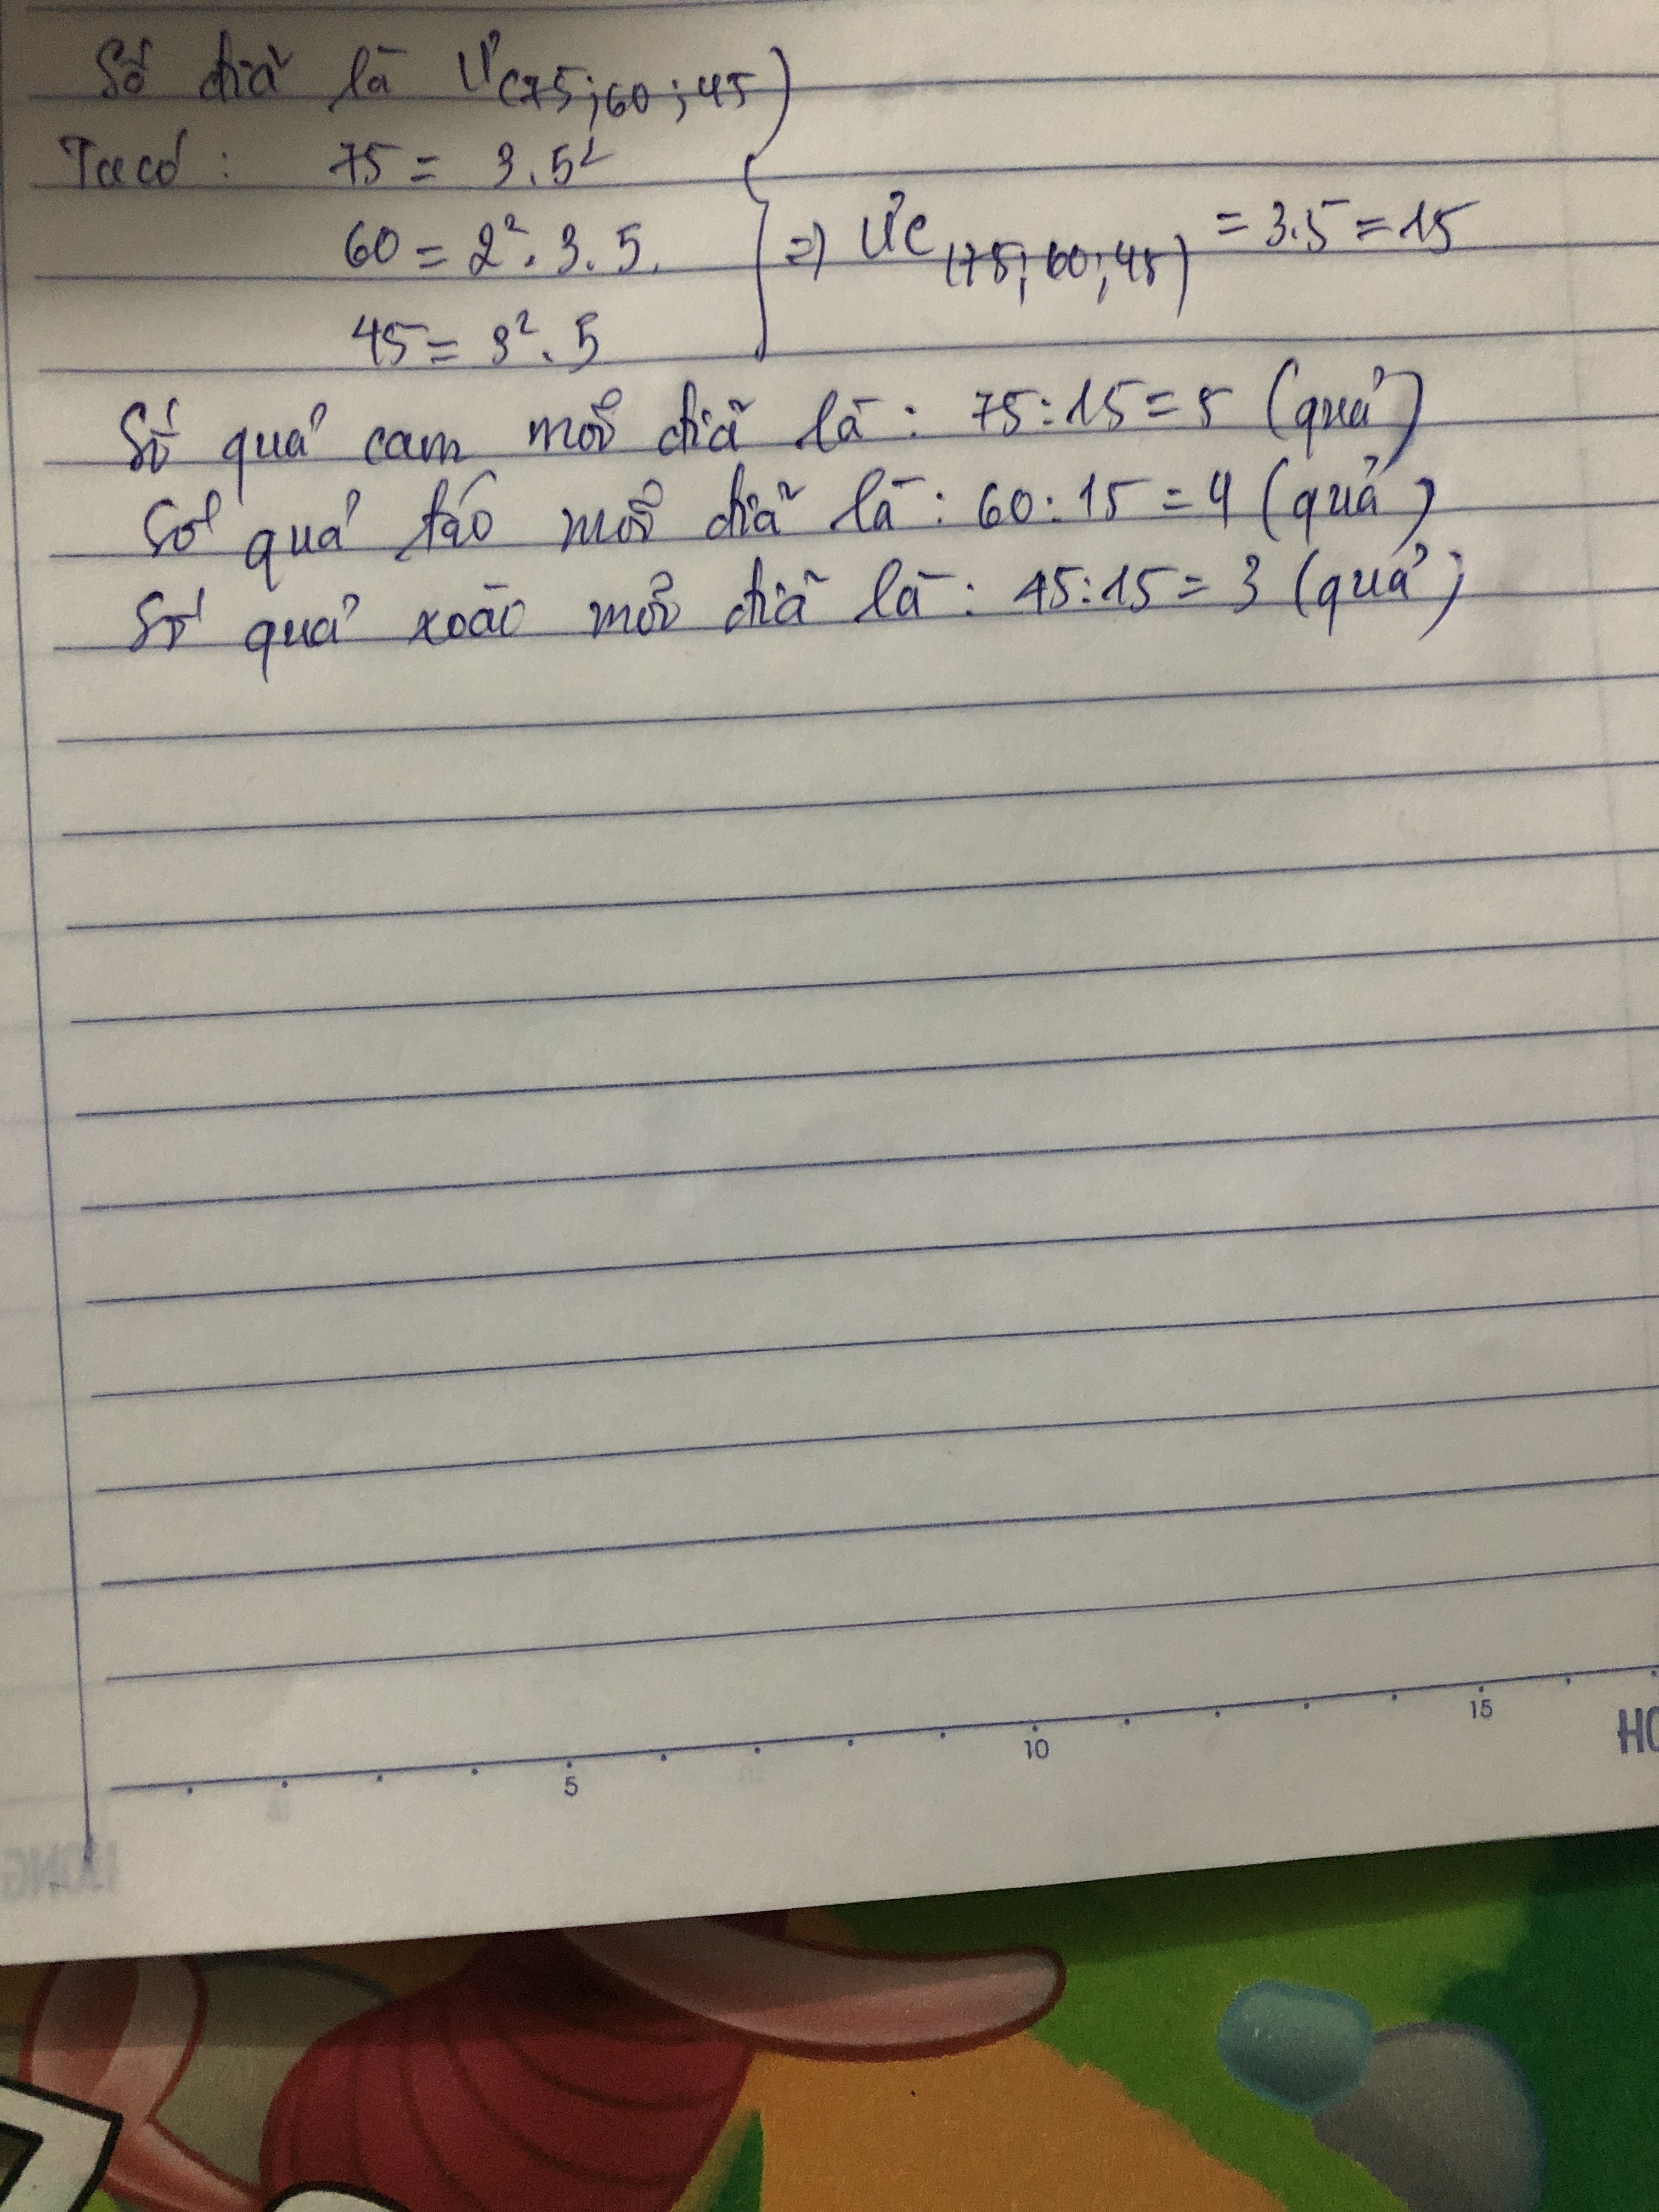 Số đĩa là Ư(75;60;45)
Ta có: 75 = 3.5²
60 = 2².3.5.
45 = 3².5
=> ƯC(75;60;45) = 3.5 = 15
Số quả cam mỗi đĩa là: 75:15 = 5 (quả)
Số quả táo mỗi đĩa là: 60:15 = 4 (quả)
Số quả xoài mỗi đĩa là: 45:15 = 3 (quả)
5 10 15